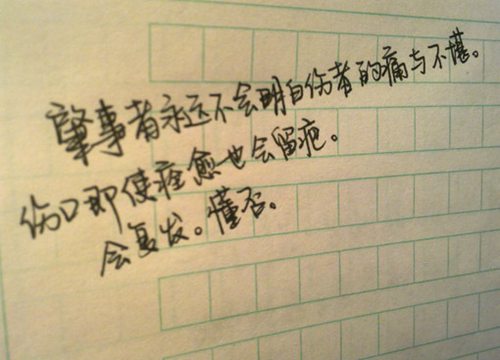 肇事者永远不会明白伤者的痛与不堪。
伤口即使痊愈也会留疤。
会复发。懂否。